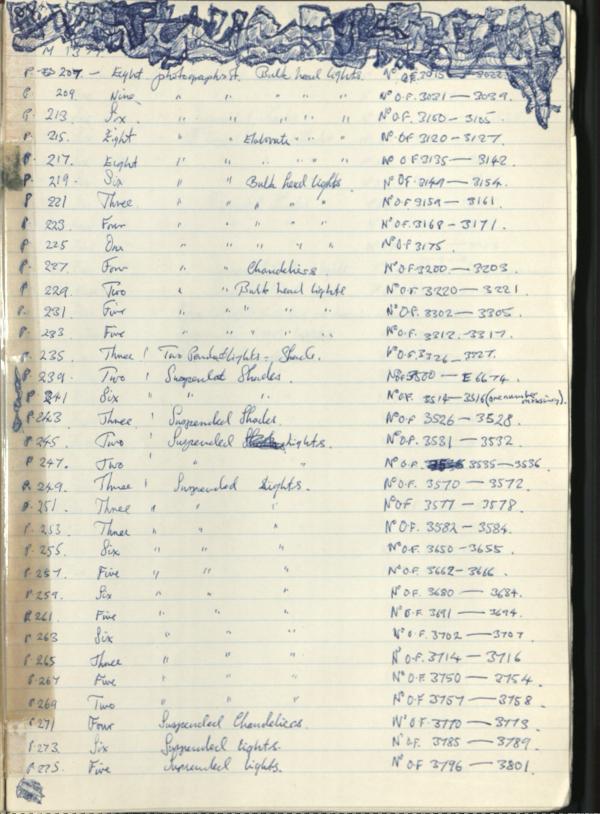 M 1377.
P. 207 - Eight photographs of. Bulk head lights. Nº OF. 3015 — 3022.
P. 209. Nine " " " " " Nº O.F. 3031 — 3039.
P. 213 Six. " " " " " Nº OF. 3160 - 3165.
P. 215. Eight " " Elaborate " " Nº OF 3120 - 3127.
P. 217. Eight " " " " " Nº OF 3135 — 3142
P. 219. Six " " Bulk head lights Nº OF. 3149 — 3154.
P 221 Three " " " " " Nº OF 3159 — 3161.
P 223. Four " " " " Nº OF. 3168 - 3171.
P 225 One " " " " " Nº OF 3175.
P. 227. Four " " Chandeliers. Nº OF. 3200 — 3203.
P. 229. Two " " Bulk head lights Nº OF. 3220 — 3221.
P. 231 Five " " " " " Nº O.F. 3302 — 3305.
P. 233 Five " " " " " Nº OF. 3312. 3317.
P. 235. Three " Two Pendant lights - Shade. Nº O.F. 3326 - 3327.
P. 239. Two " Suspended Shades. Nº OF 3500 — E 6674.
P. 241 Six " " " Nº OF. 3514 - 3516 (one number missing).
P. 243 Three " Suspended Shades. Nº OF 3526 - 3528.
P. 245. Two " Suspended lights. Nº OF. 3531 — 3532.
P 247. Two " " " Nº O.F. 3535 — 3536.
P. 249. Three " Suspended Lights. Nº O.F. 3570 — 3572.
P. 251. Three " " " Nº OF 3577 — 3578.
P. 253. Three " " " Nº O.F. 3582 - 3584.
P. 255. Six " " " Nº O.F. 3650 - 3655.
P. 257. Five " " " Nº O.F. 3662 - 3666.
P. 259. Six " " " Nº O.F. 3680 — 3684.
P. 261. Five " " " Nº O.F. 3691 — 3694.
P 263 Six " " " Nº O.F. 3702 — 3707
P. 265 Three " " " Nº O.F. 3714 — 3716
P. 267 Five " " " Nº O.F. 3750 — 3754.
P. 269 Two " " " Nº O.F 3757 — 3758.
P. 271 Four Suspended Chandeliers. Nº O.F. 3770 — 3773
P. 273. Six Suspended lights. Nº O.F. 3785 — 3789.
P. 275. Five Suspended lights. Nº O.F. 3796 — 3801.